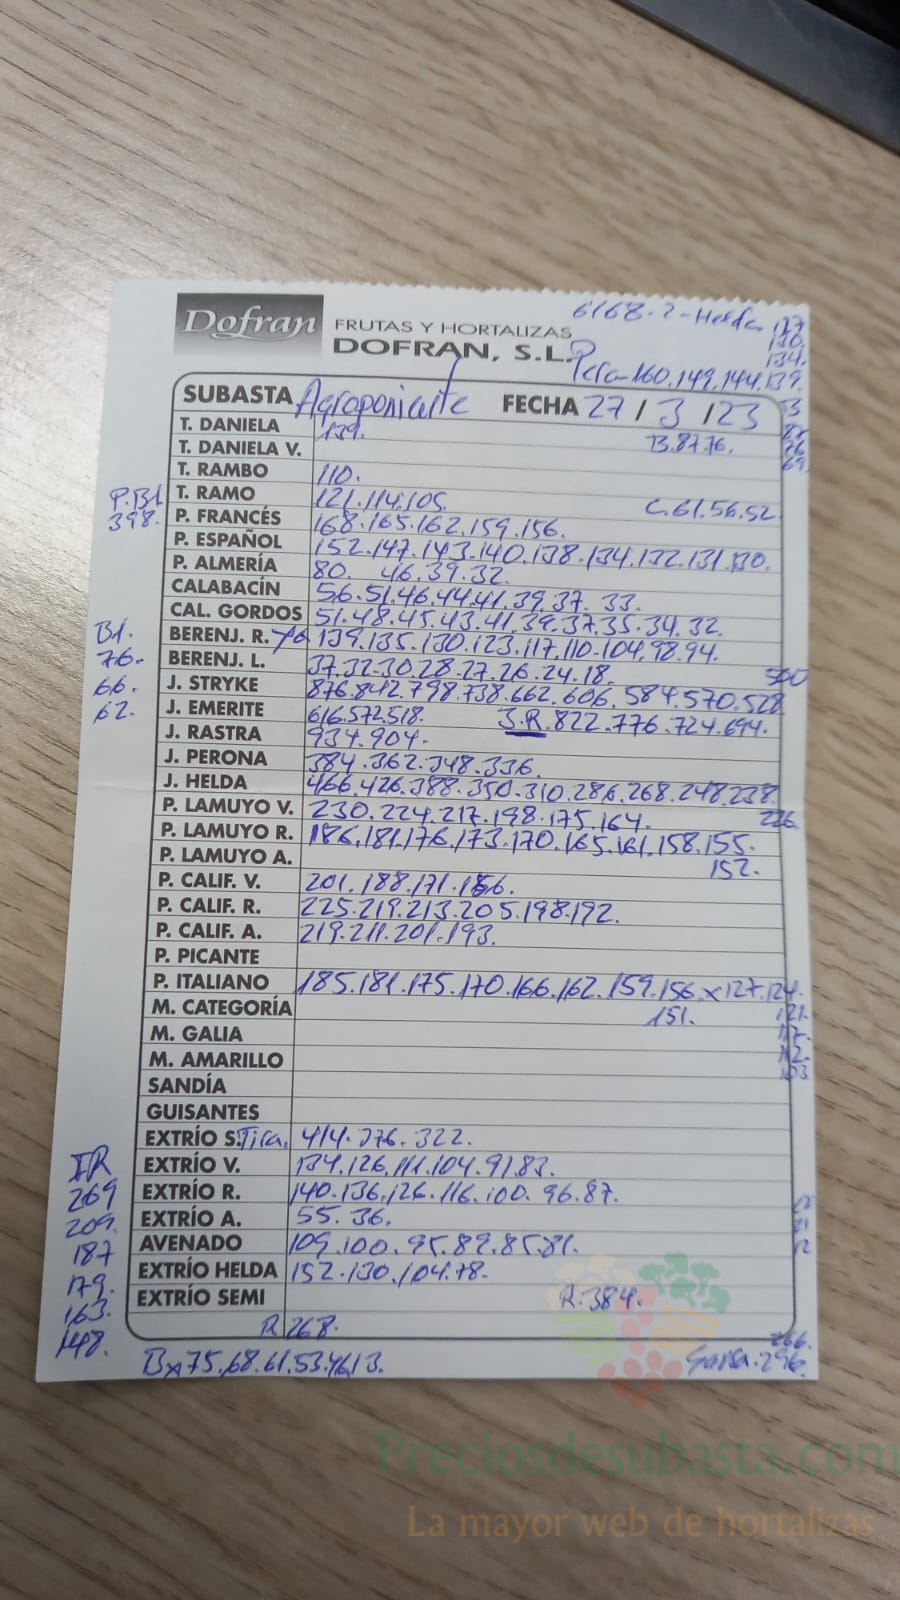 Dofran
FRUTAS Y HORTALIZAS
DOFRAN, S.L.
6168.2-Helda 137
130.
134.
Pera-160.149.144.139.
SUBASTA Agroponiente FECHA 27/3/23
T. DANIELA 139.
T. DANIELA V. B.87.76.
69
T. RAMBO 110.
T. RAMO 121.114.105. C.61.56.52.
P.Bl.
398.
P. FRANCÉS 168.165.162.159.156.
P. ESPAÑOL 152.147.143.140.138.134.132.131.130.
P. ALMERÍA 80. 46.39.32.
CALABACÍN 56.51.46.44.41.39.37.33.
CAL. GORDOS 51.48.45.43.41.39.37.35.34.32.
Bl.
76.
66.
62.
BERENJ. R. 139.135.130.123.117.110.104.98.94.
BERENJ. L. 37.32.30.28.27.26.24.18.
J. STRYKE 876.842.798.738.662.606.584.570.528
J. EMERITE 616.572.518. J.R.822.776.724.694.
J. RASTRA 934.904.
J. PERONA 384.362.348.336.
J. HELDA 466.426.388.350.310.286.268.248.238.
226
P. LAMUYO V. 230.224.217.198.175.164.
P. LAMUYO R. 186.181.176.173.170.165.161.158.155.
152.
P. LAMUYO A.
P. CALIF. V. 201.188.171.166.
P. CALIF. R. 225.219.213.205.198.192.
P. CALIF. A. 219.211.201.193.
P. PICANTE
P. ITALIANO 185.181.175.170.166.162.159.156.x127.124.
151. 121.
117.
112.
103
M. CATEGORÍA
M. GALIA
M. AMARILLO
SANDÍA
GUISANTES
EXTRÍO S.Tira. 414.376.322.
EXTRÍO V. 134.126.111.104.91.83.
EXTRÍO R. 140.136.126.116.100.96.87.
EXTRÍO A. 55.36.
AVENADO 109.100.95.89.85.81.
EXTRÍO HELDA 152.130.104.78.
EXTRÍO SEMI R.384.
IR
269
209.
187
179.
163.
148.
R 268.
Bx75.68.61.53.46.13.
266.
Garra.296.
Preciosdesubasta.com
La mayor web de hortalizas